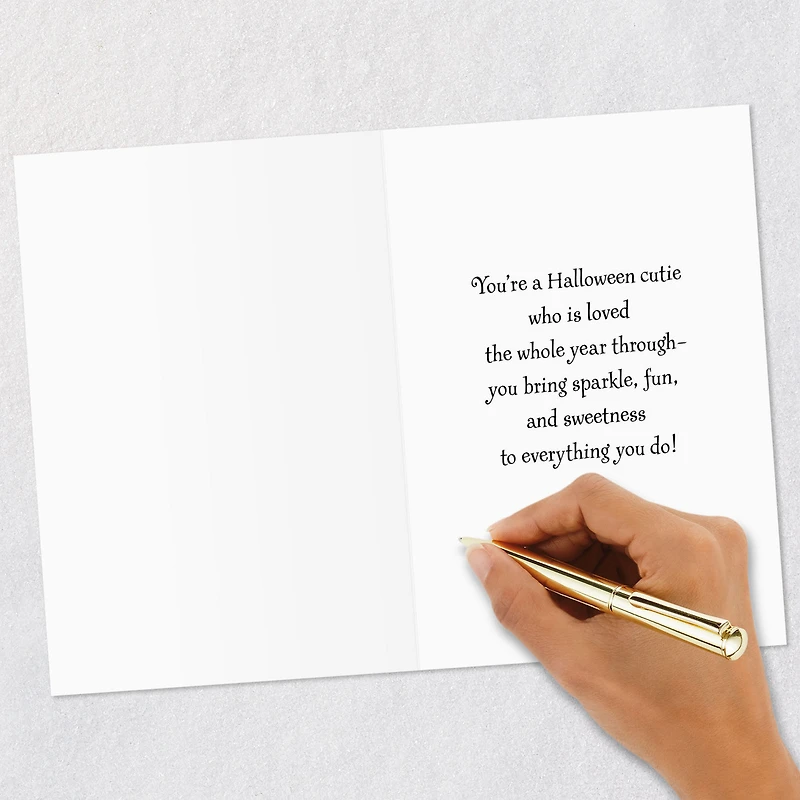 You're a Halloween cutie
who is loved
the whole year through–
you bring sparkle, fun,
and sweetness
to everything you do!